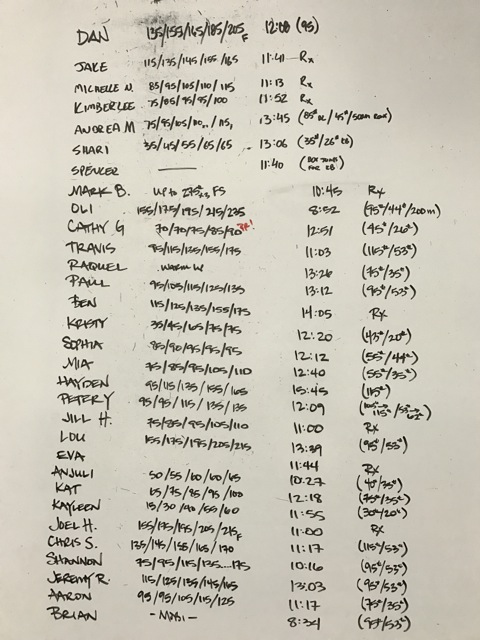 DAN 135/155/165/185/205F 12:00 (95)
JAKE 115/135/145/155/165 11:41 Rx
MICHELLE N. 85/95/105/110/115 11:13 Rx
KIMBERLEE 75/85/95/95/100 11:52 Rx
ANDREA M 75/95/105/110/115 13:45 (85# DL/45#/500m ROW)
SHARI 35/45/55/65/65 13:06 (35#/26# KB)
SPENCER —— 11:40 (BOX JUMPS FOR KB)
MARK B. UP TO 275#x3 FS 10:45 Rx
OLI 155/175/195/215/235 8:52 (95#/44#/200m)
CATHY G 70/70/75/85/90 PR! 12:51 (45#/26#)
TRAVIS 95/115/125/155/175 11:03 (115#/53#)
RAQUEL 13:26 (75#/35#)
PAUL 95/105/115/125/135 13:12 (95#/53#)
BEN 115/125/135/155/175 14:05 Rx
KRISTY 35/45/65/75/75 12:20 (43#/20#)
SOPHIA 85/90/95/95/95 12:12 (55#/44#)
MIA 75/85/95/105/110 12:40 (55#/35#)
HAYDEN 95/115/135/155/165 15:45 (115#)
PETER Y 95/95/115/135/135 12:09 115#/53#
JILL H. 75/85/95/105/110 11:00 Rx
LOU 155/175/195/205/215 13:39 (95#/53#)
EVA 11:44 Rx
ANJULI 50/55/60/60/65 10:27 (40#/35#)
KAT 65/75/85/95/100 12:18 (75#/35#)
KAYLEEN 15/30/40/55/60 11:55 (30#/20#)
JOEL H. 155/175/195/205/215F 11:00 Rx
CHRIS S. 135/145/155/165/170 11:17 (115#/53#)
SHANNON 75/95/115/135...175 10:16 (95#/53#)
JEREMY R. 115/125/135/145/165 13:03 (95#/53#)
AARON 95/95/105/115/125 11:17 (75#/35#)
BRIAN - MOBI - 8:34 (95#/53#)